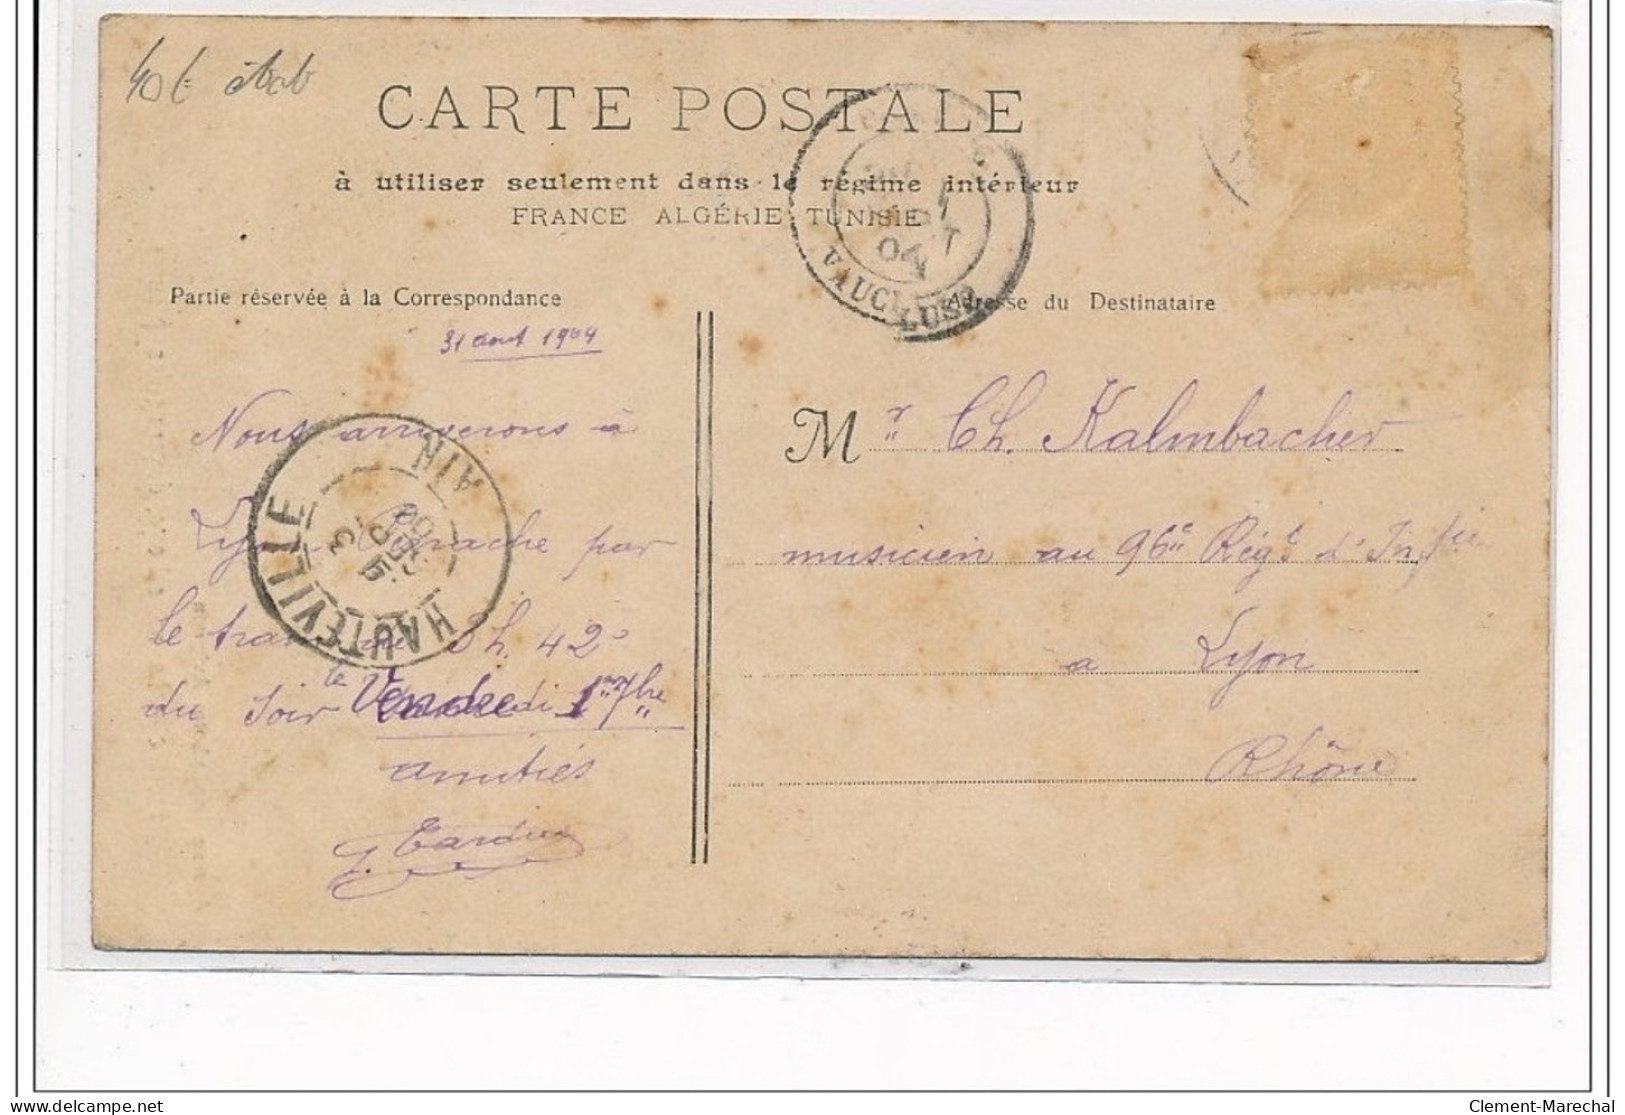 40 €
CARTE POSTALE
à utiliser seulement dans le régime intérieur
FRANCE ALGÉRIE TUNISIE
VAUCLUSE
04
Partie réservée à la Correspondance
31 aout 1904
Nous arriverons à
Lyon Perrache par
le train de h. 42
du soir le Vendredi 1er 7bre
amitiés
HAUTEVILLE
AIN
SEPT
Adresse du Destinataire
Mr Ch. Kalmbacher
musicien au 96e Régt d'Infie
a Lyon
Rhône
delcampe.net
Clement-Marechal